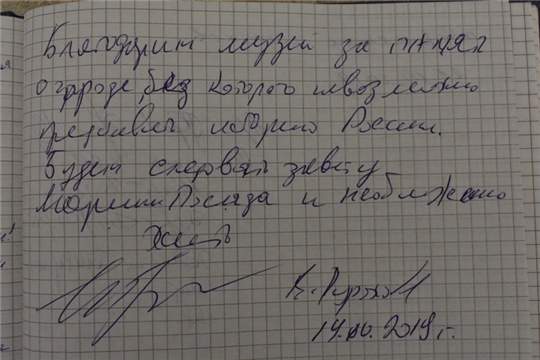 Благодарим музей за память
о городе, без которого невозможно
представить историю России.
Будем следовать завету
Марии Посада и необходимо
жить
14. 2019 г.